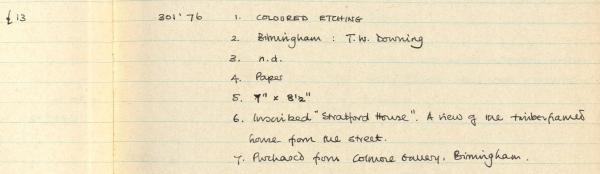 £13 301'76 1. COLOURED ETCHING
2. Birmingham : T.W. Downing
3. n.d.
4. Paper
5. 7" x 8½"
6. Inscribed "Stratford House". A view of the timberframed
house from the street.
7. Purchased from Colmore Gallery, Birmingham.